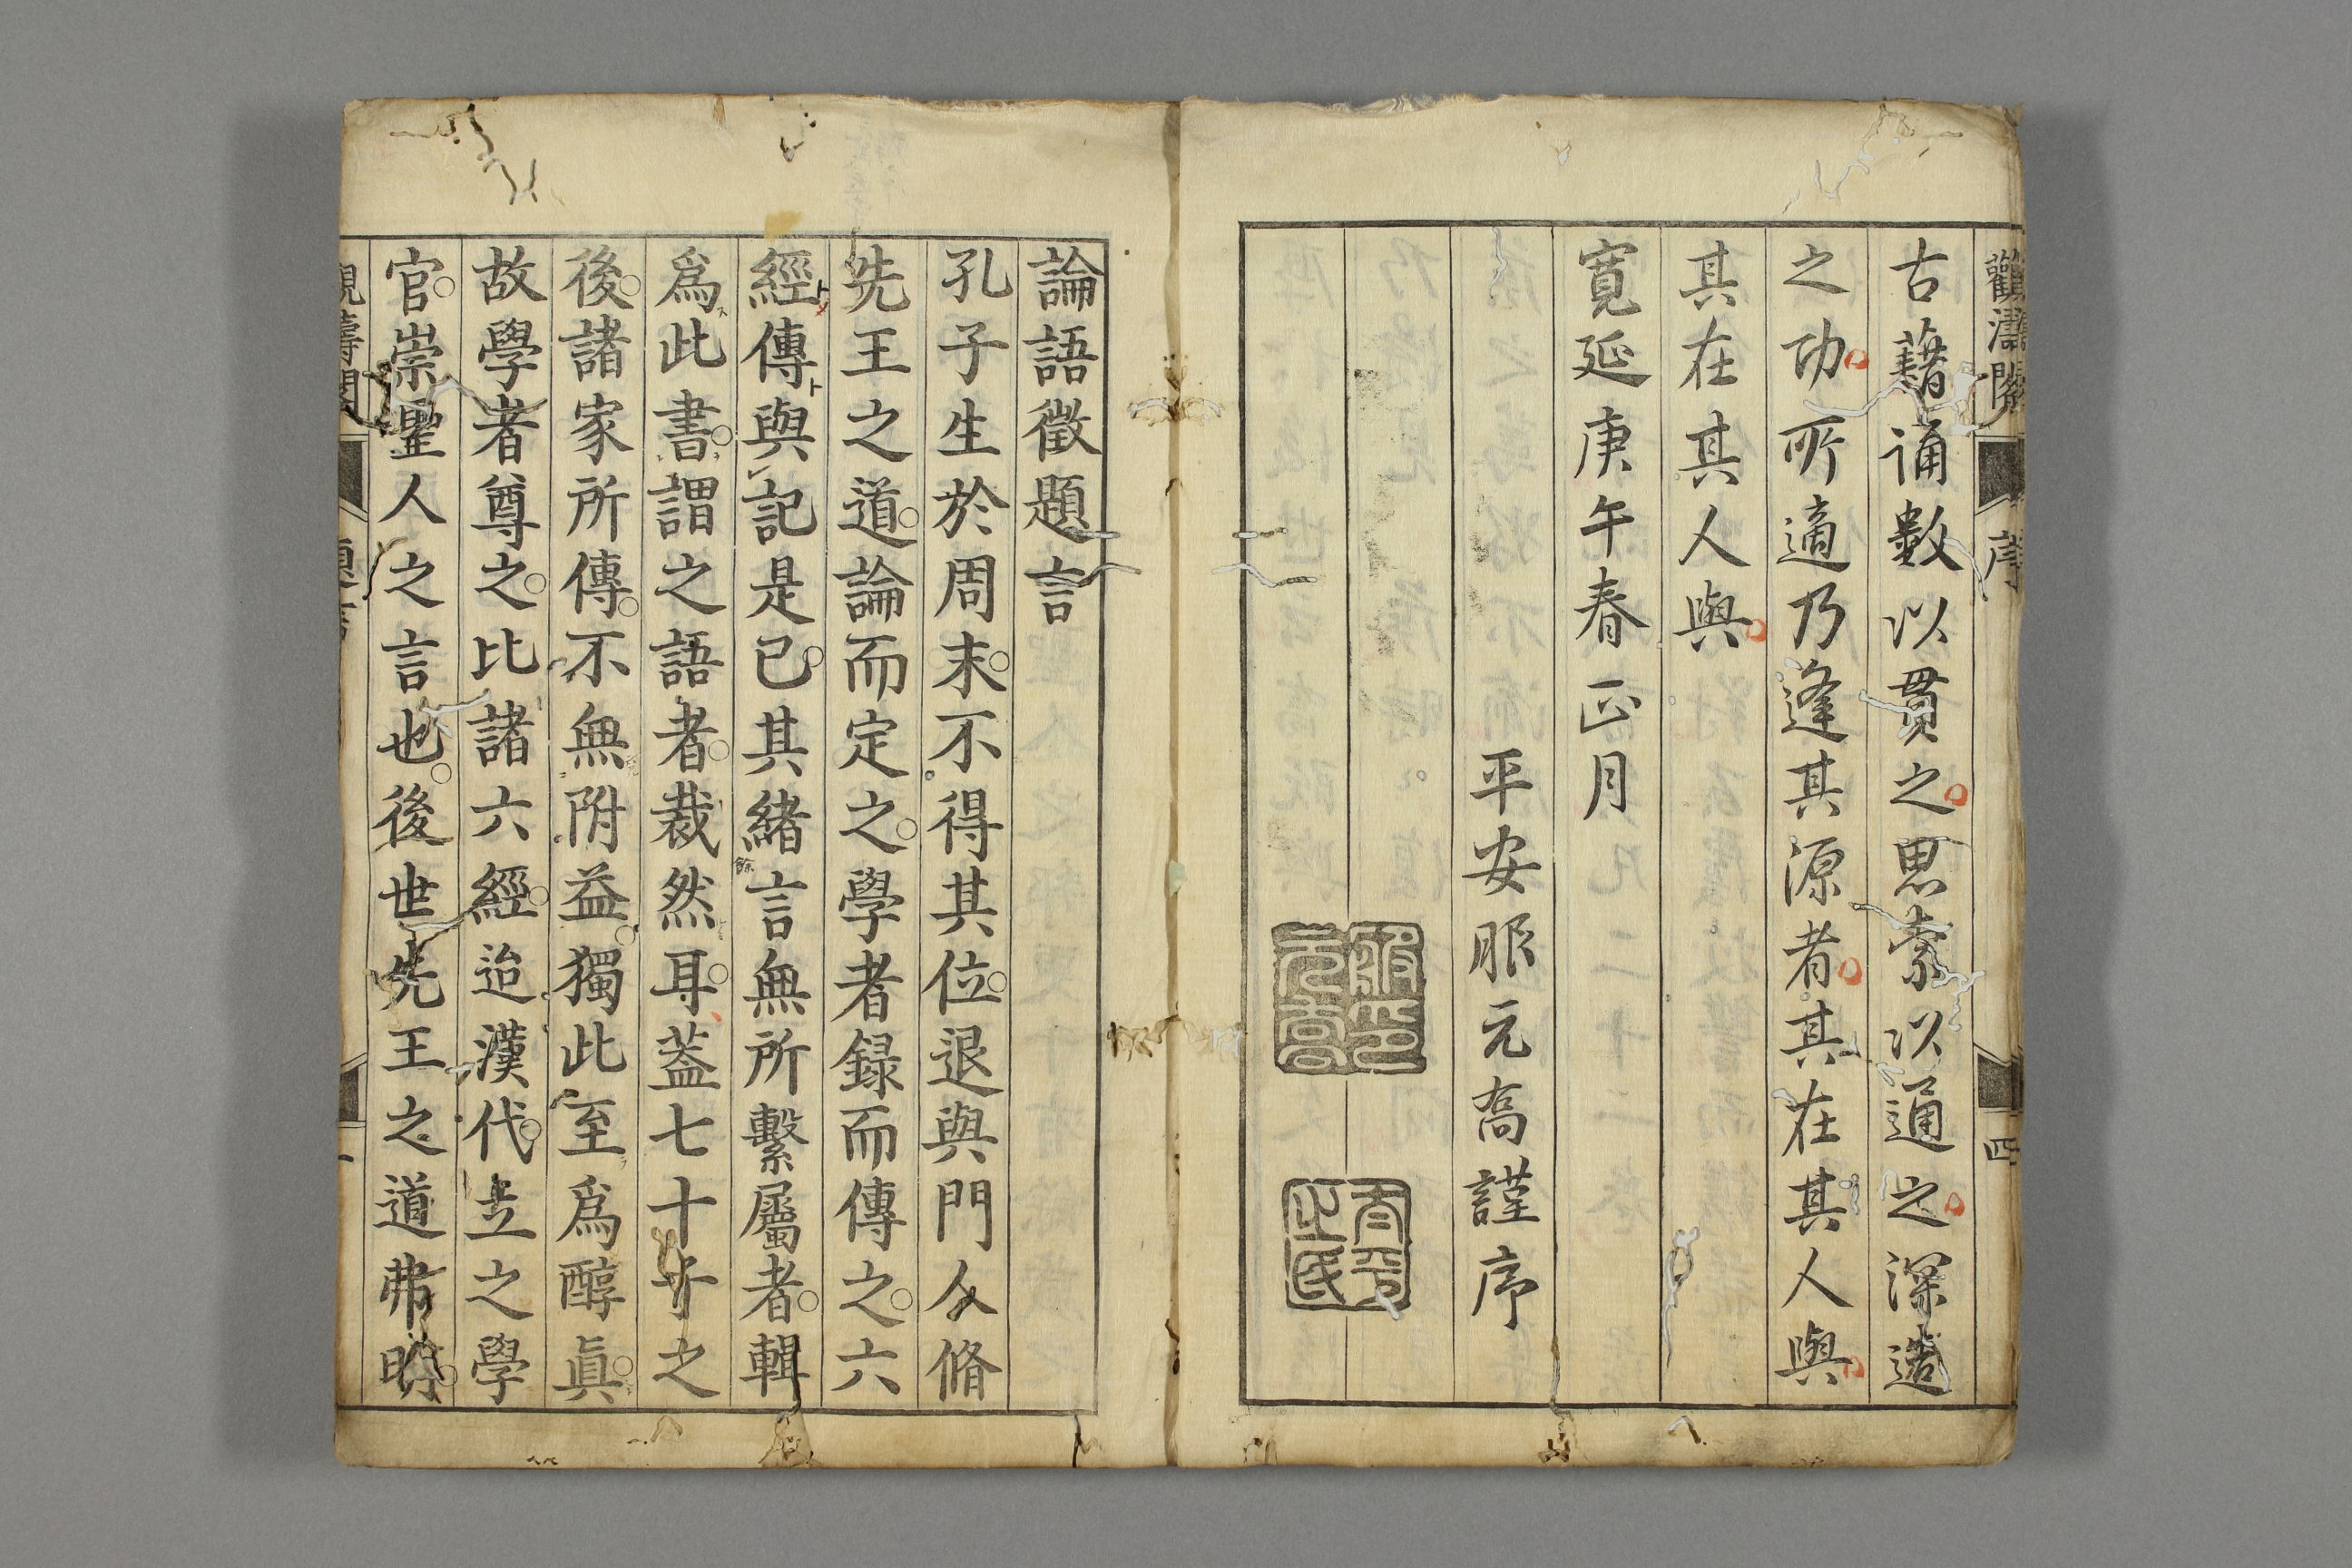 古藉誦數以貫之思索以通之深造
之功所適乃逢其源者其在其人與
其在其人與
寬延庚午春正月
平安服元喬謹序
論語徵題言
孔子生於周末不得其位退與門人脩
先王之道論而定之學者録而傳之六
經傳與記是已其緒言無所繫屬者輯
爲此書謂之語者裁然耳蓋七十子之
後諸家所傳不無附益獨此至爲醇眞
故學者尊之比諸六經迨漢代立之學
官崇聖人之言也後世先王之道弗明